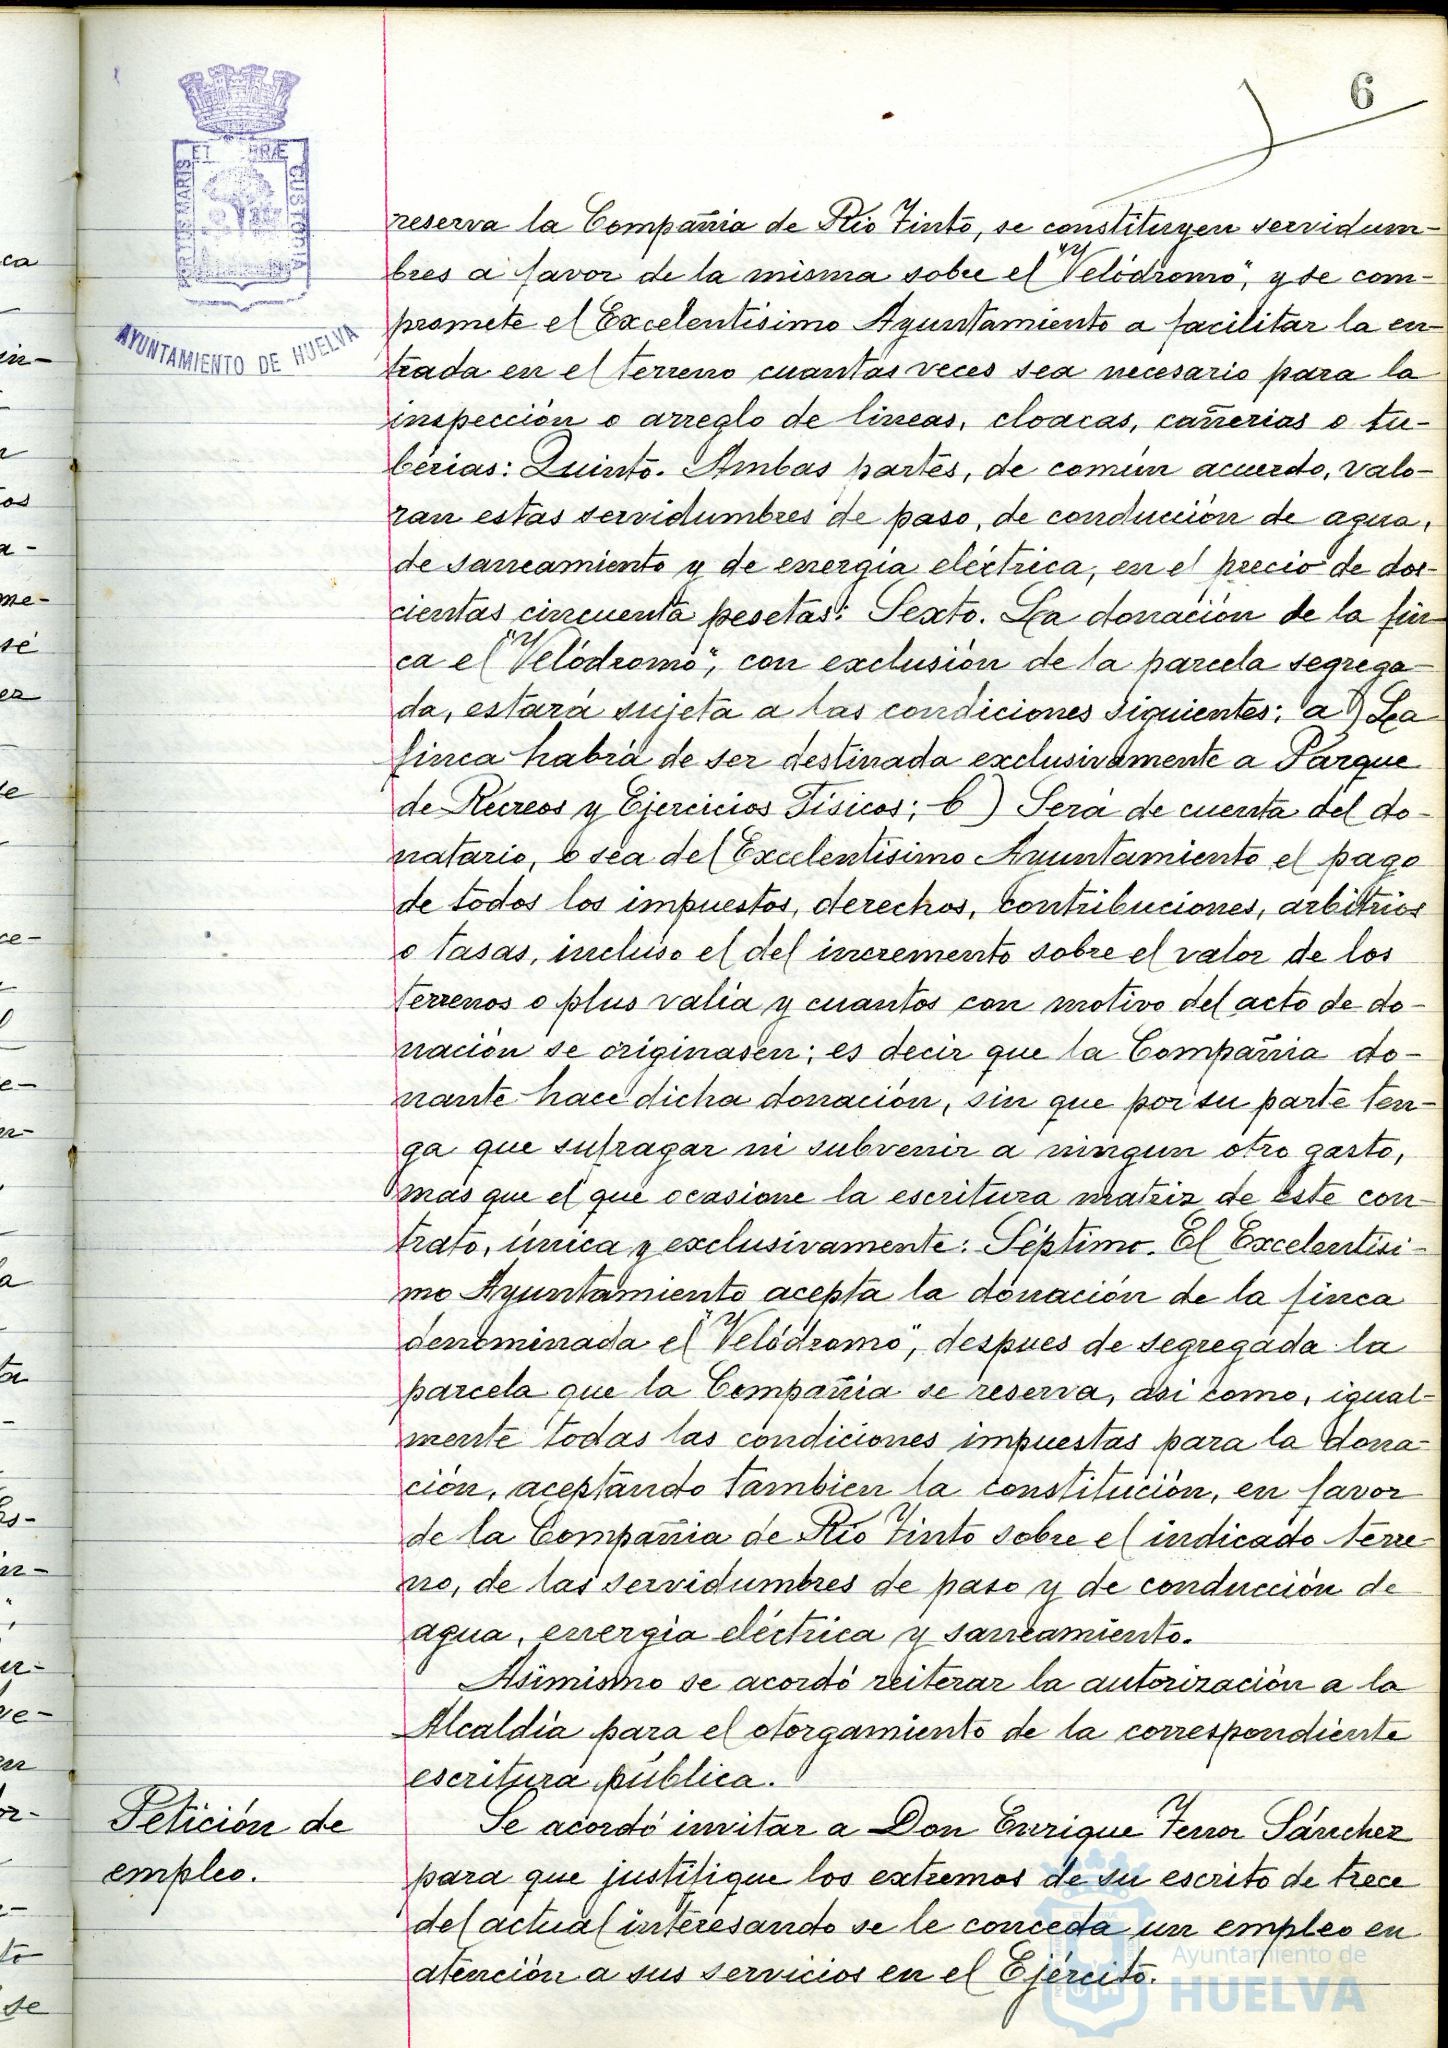 6
PORTUS MARIS ET TERRÆ CUSTODIA
AYUNTAMIENTO DE HUELVA
reserva la Compañia de Rio Tinto, se constituyen servidum-
bres a favor de la misma sobre el "Velódromo", y se com-
promete el Excelentisimo Ayuntamiento a facilitar la en-
trada en el terreno cuantas veces sea necesario para la
inspección o arreglo de lineas, cloacas, cañerias o tu-
berias: Quinto. Ambas partes, de común acuerdo, valo-
ran estas servidumbres de paso, de conducción de agua,
de saneamiento y de energia eléctrica, en el precio de dos-
cientas cincuenta pesetas: Sexto. La donación de la fin-
ca el "Velódromo", con exclusión de la parcela segrega-
da, estará sujeta a las condiciones siguientes; a) La
finca habrá de ser destinada exclusivamente a Parque
de Recreos y Ejercicios Fisicos; b) Será de cuenta del do-
natario, o sea del Excelentisimo Ayuntamiento el pago
de todos los impuestos, derechos, contribuciones, arbitrios
o tasas, incluso el del incremento sobre el valor de los
terrenos o plus valia y cuantos con motivo del acto de do-
nación se originasen; es decir que la Compañia do-
nante hace dicha donación, sin que por su parte ten-
ga que sufragar ni subvenir a ningun otro gasto,
mas que el que ocasione la escritura matriz de este con-
trato, única y exclusivamente: Séptimo. El Excelentisi-
mo Ayuntamiento acepta la donación de la finca
denominada el "Velódromo", despues de segregada la
parcela que la Compañia se reserva, asi como, igual-
mente todas las condiciones impuestas para la dona-
ción, aceptando tambien la constitución, en favor
de la Compañia de Rio Tinto sobre el indicado terre-
no, de las servidumbres de paso y de conducción de
agua, energia eléctrica y saneamiento.
Asimismo se acordó reiterar la autorización a la
Alcaldia para el otorgamiento de la correspondiente
escritura pública.
Petición de
empleo.
Se acordó invitar a Don Enrique Ferror Sánchez
para que justifique los extremos de su escrito de trece
del actual interesando se le conceda un empleo en
atención a sus servicios en el Ejército.
Ayuntamiento de
HUELVA